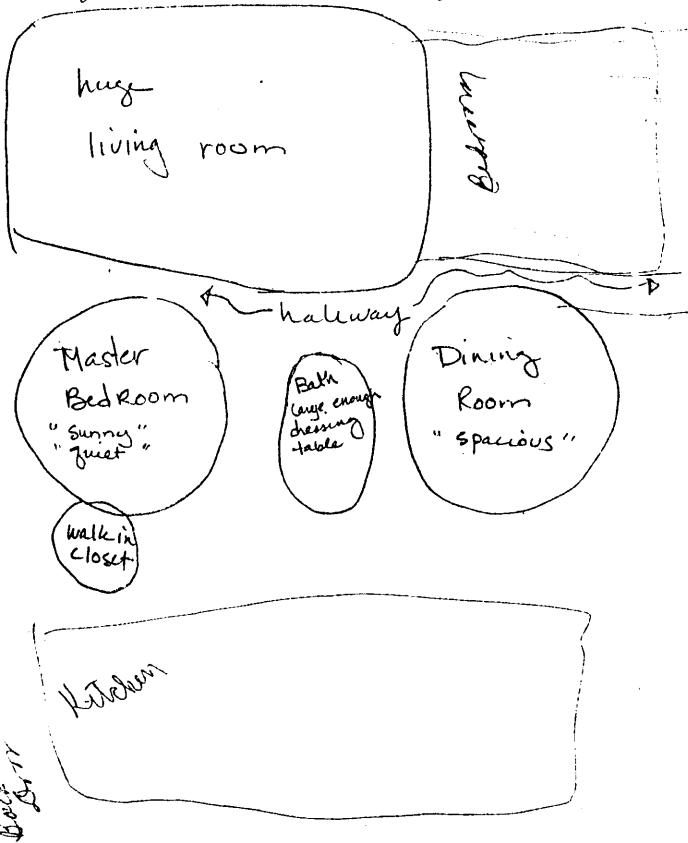 huge
living room
Bedroom
hallway
Master
BedRoom
"Sunny"
"quiet"
Bath
large enough
dressing
table
Dining
Room
"spacious"
walk in
closet
Kitchen
Back
Door